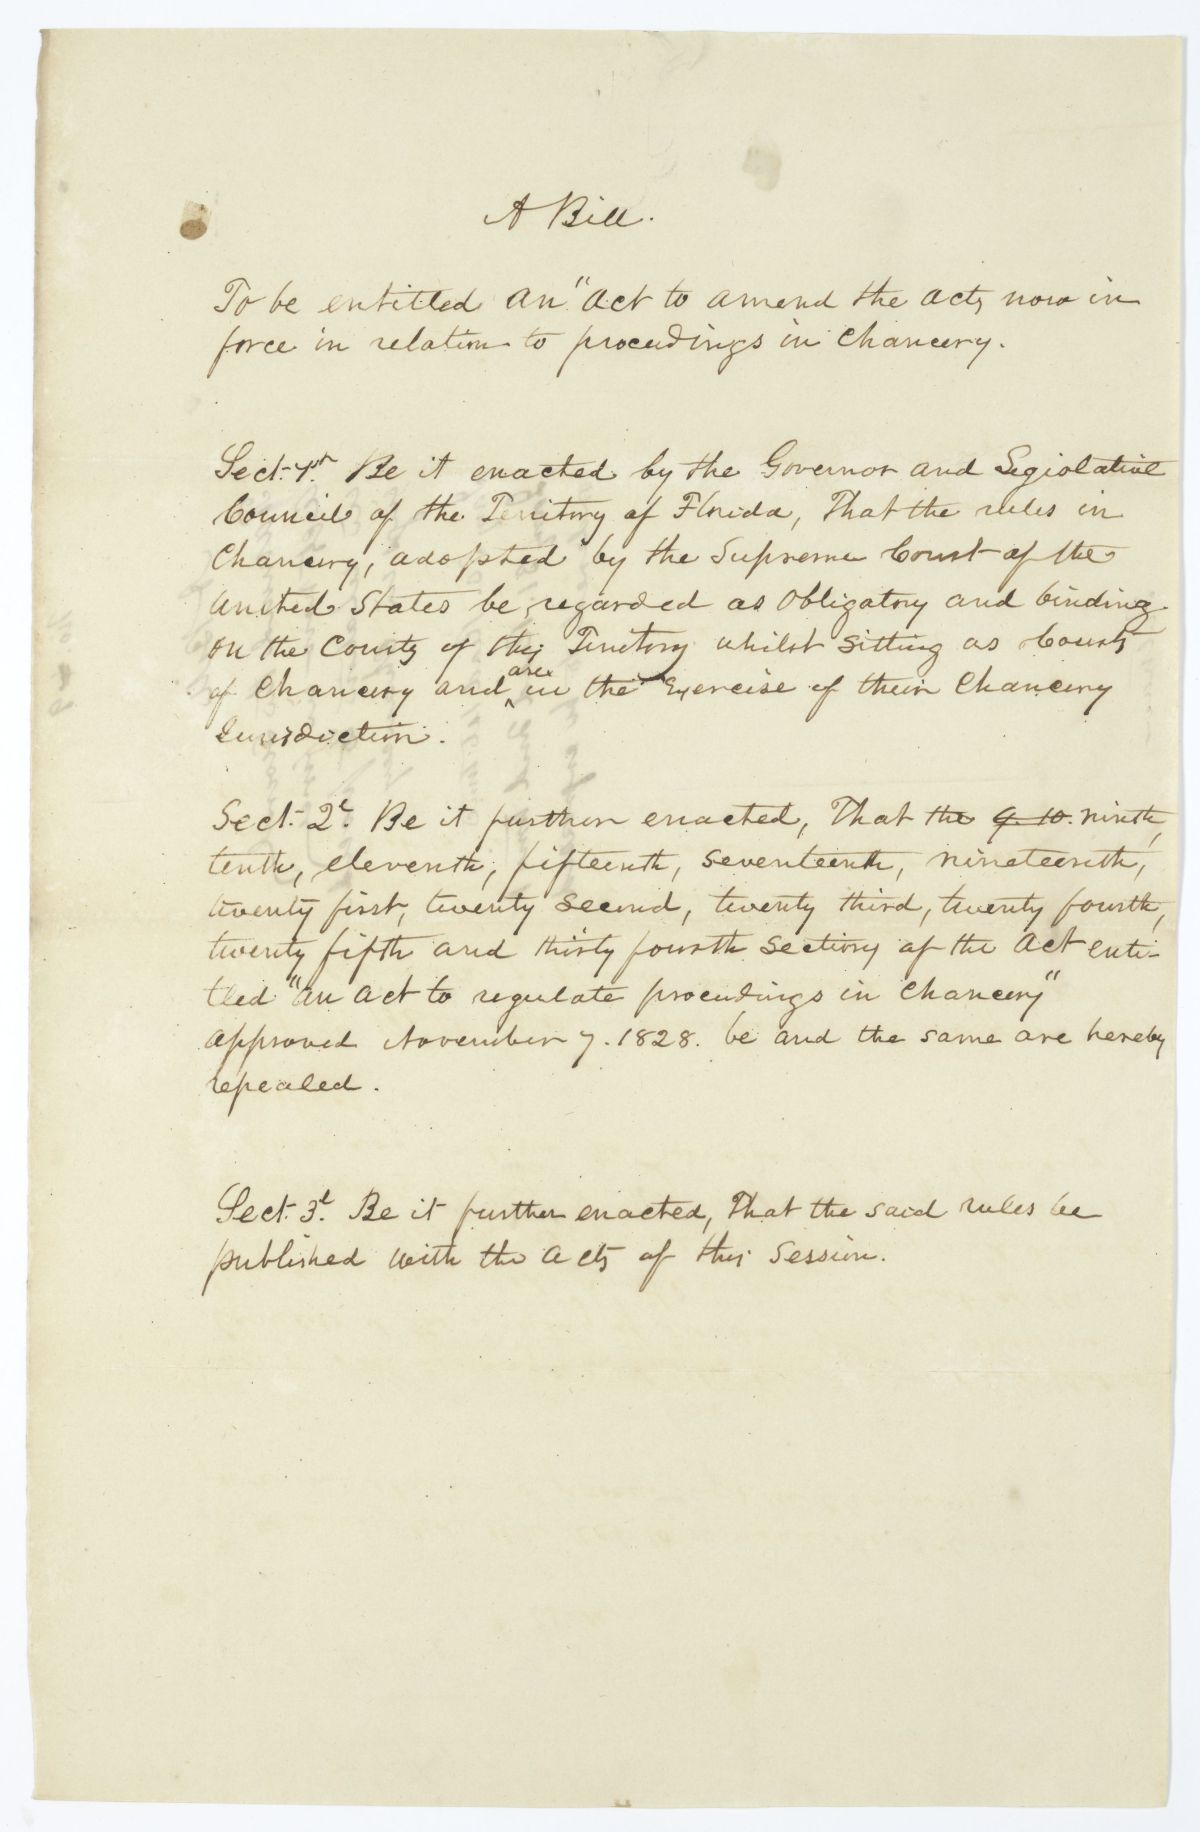 A Bill.
To be entitled an "Act to amend the acts now in
force in relation to proceedings in Chancery.
Sect. 1st. Be it enacted by the Governor and Legislative
Council of the Territory of Florida, That the rules in
Chancery, adopted by the Supreme Court of the
United States be regarded as Obligatory and binding
on the Courts of this Territory whilst sitting as Courts
of Chancery and are in the Exercise of their Chancery
Jurisdiction.
Sect. 2d. Be it further enacted, That the 9. 10. ninth,
tenth, eleventh, fifteenth, seventeenth, nineteenth,
twenty first, twenty second, twenty third, twenty fourth,
twenty fifth and thirty fourth sections of the Act enti-
tled "An Act to regulate proceedings in Chancery"
approved November 7. 1828. be and the same are hereby
repealed.
Sect. 3d. Be it further enacted, That the said rules be
published with the Acts of this Session.